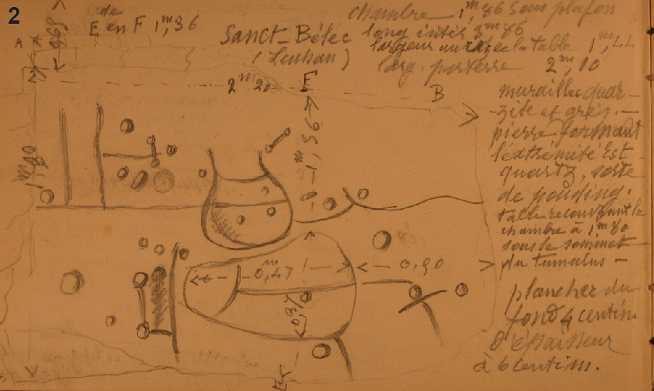 2
de
E en F 1,m36
A
Sanct-Bélec
(Leuhan)
chambre 1,m86 sous plafon
long intér 3m86
largeur murs la table 1,m44
larg. par terre 2,m10
2m20
E
B
1m36
1m80
muraille quar-
zite et grès. —
pierre formant
l'extrémité Est
quartz, sorte
de pouding.
table recouvrant la
chambre à 1,m80
sous le sommet
du tumulus —
0,47
0,90
plancher du
fond 4 centim
d'épaisseur
à 6 centim.